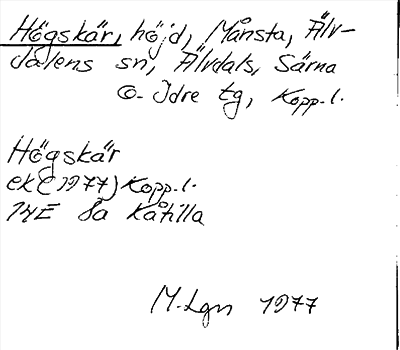 Högskär, höjd, Månsta, Älv-
dalens sn, Älvdals, Särna
o. Idre tg, Kopp. l.
Högskär
ek (1977) Kopp. l.
14E 8a Kåtilla
M. Lgn 1977